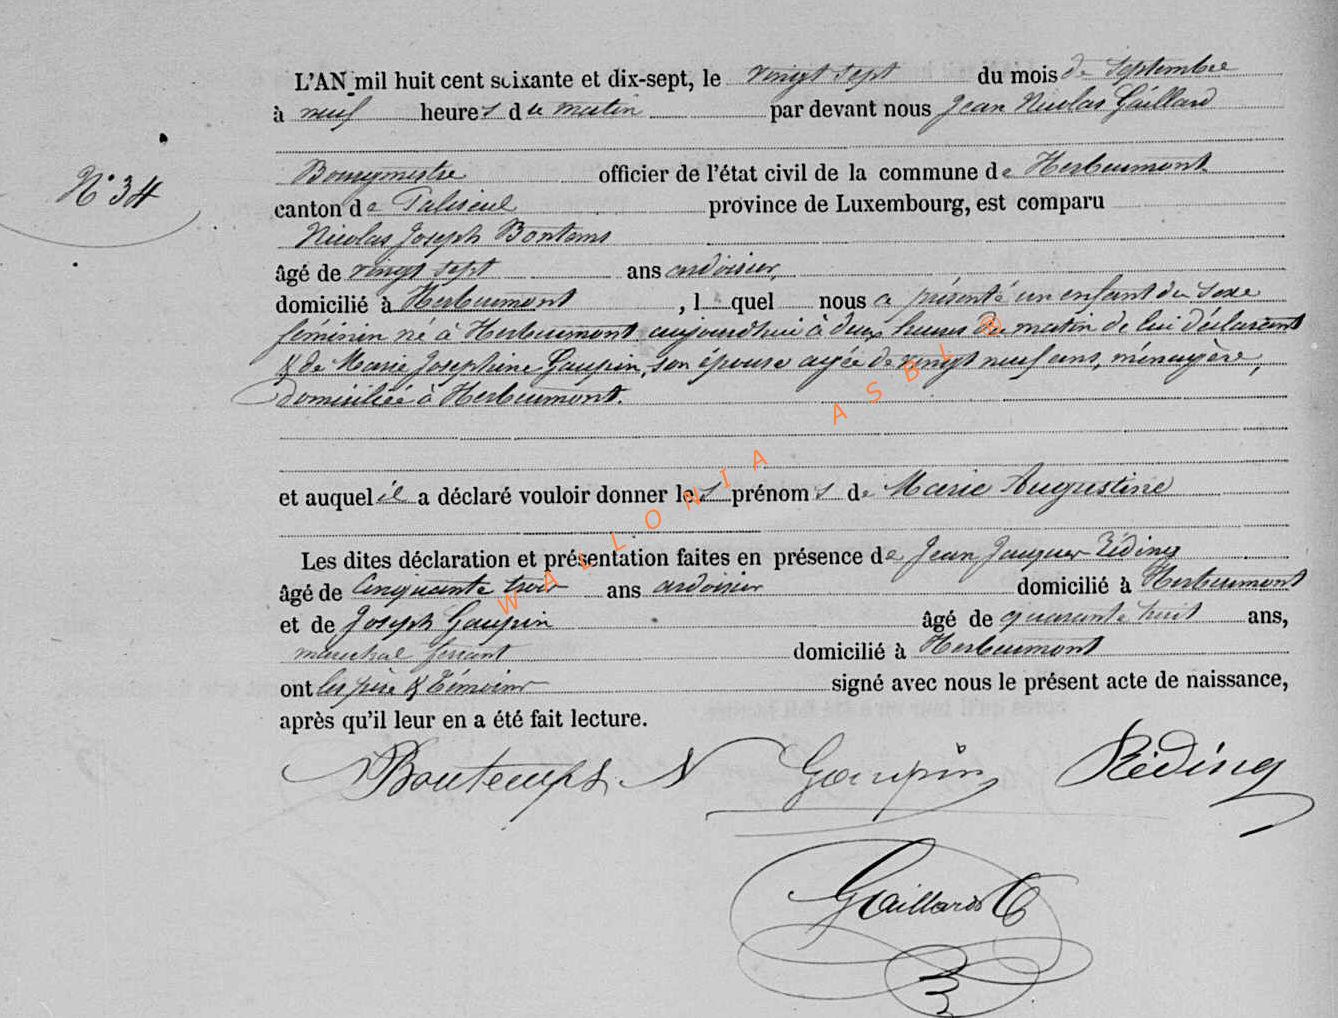 L'AN mil huit cent soixante et dix-sept, le vingt sept du mois de Septembre
à neuf heures du matin par devant nous Jean Nicolas Gaillard
Bourgmestre officier de l'état civil de la commune de Herbeumont
N° 34
canton de Paliseul province de Luxembourg, est comparu
Nicolas Joseph Bontems
âgé de vingt sept ans ardoisier,
domicilié à Herbeumont, lequel nous a présenté un enfant du sexe
féminin né à Herbeumont aujourdhui à deux heures du matin de lui déclarant
& de Marie Josephine Gaupin, son épouse agée de vingt neuf ans, ménagère,
domiciliée à Herbeumont.
et auquel il a déclaré vouloir donner les prénoms de Marie Augustine
Les dites déclaration et présentation faites en présence de Jean Jacques Réding
âgé de Cinquante trois ans ardoisier domicilié à Herbeumont
et de Joseph Gaupin âgé de quarante huit ans,
maréchal ferrant domicilié à Herbeumont
ont les père & témoins signé avec nous le présent acte de naissance,
après qu'il leur en a été fait lecture.
Bontemps N Gaupin Réding
Gaillard
WALLONIA ASBL ®